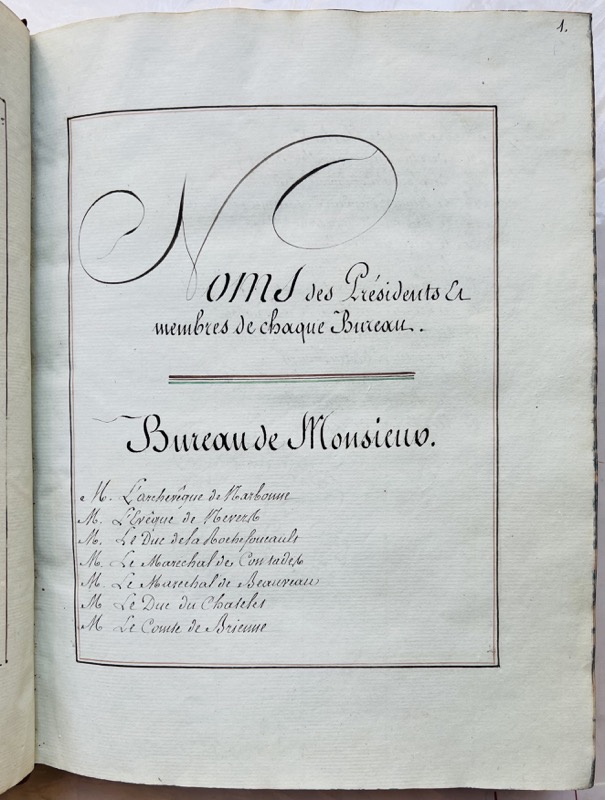 1.
Noms des Présidents Et
membres de chaque Bureau.
Bureau de Monsieur.
M. L'archevêque de Narbonne
M. L'Evêque de Nevers
M. Le Duc de la Rochefoucault
M. Le Marechal de Contades
M. Le Marechal de Beauveau
M Le Duc du Chatelet
M Le Comte de Brienne